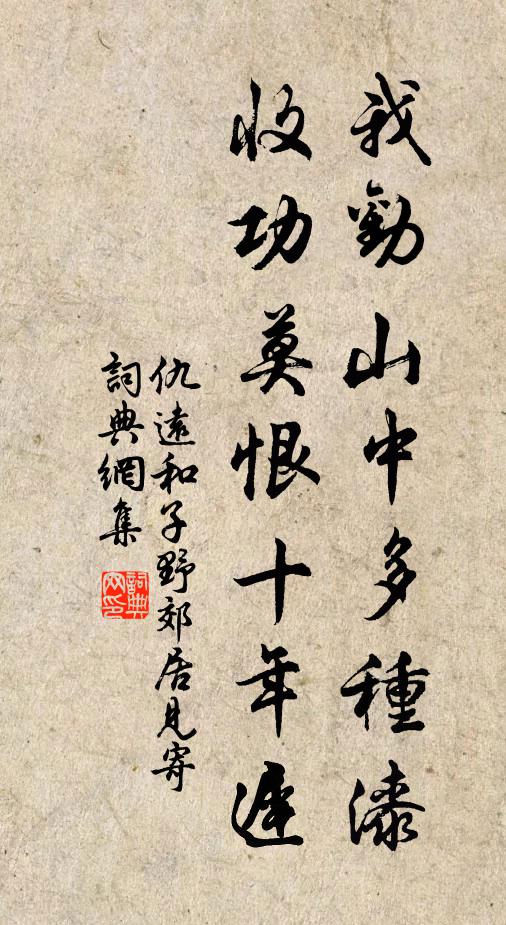 我勸山中多種漆
收功莫恨十年遲
仇遠和子野郊居見寄
詞典網集
詞典网印